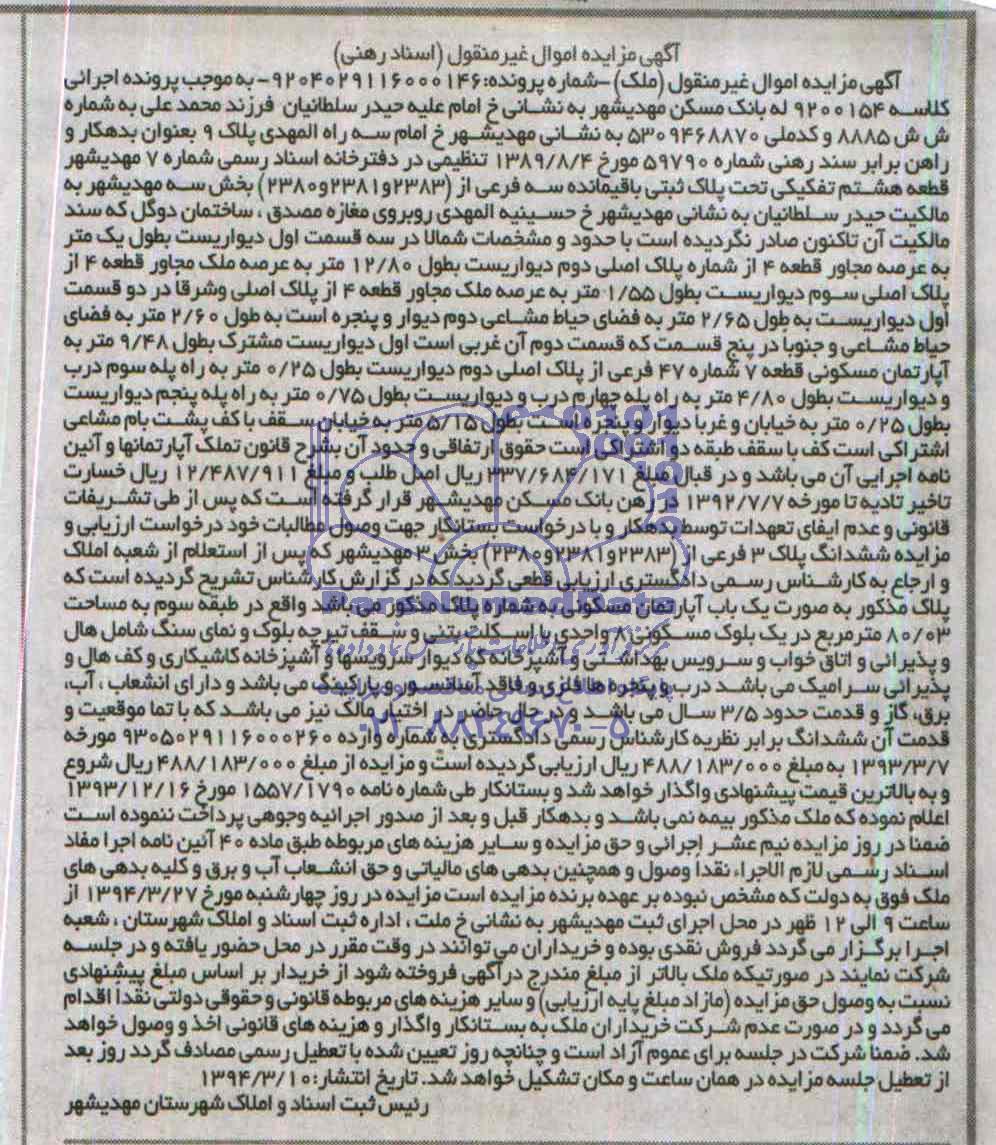 آگهی مزایده اموال غیرمنقول (اسناد رهنی)
آگهی مزایده اموال غیرمنقول (ملک) –شماره پرونده:۹۲۰۴۰۲۹۱۱۶۰۰۰۱۴۶– به موجب پرونده اجرائی
کلاسه ۹۲۰۰۱۵۴ له بانک مسکن مهدیشهر به نشانی خ امام علیه حیدر سلطانیان فرزند محمد علی به شماره
ش ش ۸۸۸۵ و کدملی ۵۳۰۹۴۶۸۸۷۰ به نشانی مهدیشهر خ امام سه راه المهدی پلاک ۹ بعنوان بدهکار و
راهن برابر سند رهنی شماره ۵۹۷۹۰ مورخ ۱۳۸۹/۸/۴ تنظیمی در دفترخانه اسناد رسمی شماره ۷ مهدیشهر
قطعه هشتم تفکیکی تحت پلاک ثبتی باقیمانده سه فرعی از (۲۳۸۳و۲۳۸۱و۲۳۸۰) بخش سه مهدیشهر به
مالکیت حیدر سلطانیان به نشانی مهدیشهر خ حسینیه المهدی روبروی مغازه مصدق ، ساختمان دوگل که سند
مالکیت آن تاکنون صادر نگردیده است با حدود و مشخصات شمالا در سه قسمت اول دیواریست بطول یک متر
به عرصه مجاور قطعه ۴ از شماره پلاک اصلی دوم دیواریست بطول ۱۲/۸۰ متر به عرصه ملک مجاور قطعه ۴ از
پلاک اصلی سوم دیواریست بطول ۱/۵۵ متر به عرصه ملک مجاور قطعه ۴ از پلاک اصلی وشرقا در دو قسمت
اول دیواریست به طول ۲/۶۵ متر به فضای حیاط مشاعی دوم دیوار و پنجره است به طول ۲/۶۰ متر به فضای
حیاط مشاعی و جنوبا در پنج قسمت که قسمت دوم آن غربی است اول دیواریست مشترک بطول ۹/۴۸ متر به
آپارتمان مسکونی قطعه ۷ شماره ۴۷ فرعی از پلاک اصلی دوم دیواریست بطول ۰/۲۵ متر به راه پله سوم درب
و دیواریست بطول ۴/۸۰ متر به راه پله چهارم درب و دیواریست بطول ۰/۷۵ متر به راه پله پنجم دیواریست
بطول ۰/۲۵ متر به خیابان و غربا دیوار و پنجره است بطول ۵/۱۵ متر به خیابان سقف با کف پشت بام مشاعی
اشتراکی است کف با سقف طبقه دو اشتراکی است حقوق ارتفاقی و حدود آن بشرح قانون تملک آپارتمانها و آئین
نامه اجرایی آن می باشد و در قبال مبلغ ۳۳۷/۶۸۴/۱۷۱ ریال اصل طلب و مبلغ ۱۲/۴۸۷/۹۱۱ ریال خسارت
تاخیر تادیه تا مورخه ۱۳۹۲/۷/۷ در رهن بانک مسکن مهدیشهر قرار گرفته است که پس از طی تشریفات
قانونی و عدم ایفای تعهدات توسط بدهکار و با درخواست بستانکار جهت وصول مطالبات خود درخواست ارزیابی و
مزایده ششدانگ پلاک ۳ فرعی از (۲۳۸۳و۲۳۸۱و۲۳۸۰) بخش ۳ مهدیشهر که پس از استعلام از شعبه املاک
و ارجاع به کارشناس رسمی دادگستری ارزیابی قطعی گردید که در گزارش کارشناس تشریح گردیده است که
پلاک مذکور به صورت یک باب آپارتمان مسکونی به شماره پلاک مذکور می باشد واقع در طبقه سوم به مساحت
۸۰/۰۳ مترمربع در یک بلوک مسکونی ۸ واحدی با اسکلت بتنی و سقف تیرچه بلوک و نمای سنگ شامل هال
و پذیرائی و اتاق خواب و سرویس بهداشتی و آشپزخانه که دیوار سرویسها و آشپزخانه کاشیکاری و کف هال و
پذیرائی سرامیک می باشد درب و پنجره ها فلزی و فاقد آسانسور و پارکینگ می باشد و دارای انشعاب ، آب،
برق، گاز و قدمت حدود ۳/۵ سال می باشد و در حال حاضر در اختیار مالک نیز می باشد که با تما موقعیت و
قدمت آن ششدانگ برابر نظریه کارشناس رسمی دادگستری به شماره وارده ۹۳۰۵۰۲۹۱۱۶۰۰۰۲۶۰ مورخه
۱۳۹۳/۳/۷ به مبلغ ۴۸۸/۱۸۳/۰۰۰ ریال ارزیابی گردیده است و مزایده از مبلغ ۴۸۸/۱۸۳/۰۰۰ ریال شروع
و به بالاترین قیمت پیشنهادی واگذار خواهد شد و بستانکار طی شماره نامه ۱۵۵۷/۱۷۹۰ مورخ ۱۳۹۳/۱۲/۱۶
اعلام نموده که ملک مذکور بیمه نمی باشد و بدهکار قبل و بعد از صدور اجرائیه وجوهی پرداخت ننموده است
ضمنا در روز مزایده نیم عشر اجرائی و حق مزایده و سایر هزینه های مربوطه طبق ماده ۴۰ آئین نامه اجرا مفاد
اسناد رسمی لازم الاجراء نقدا وصول و همچنین بدهی های مالیاتی و حق انشعاب آب و برق و کلیه بدهی های
ملک فوق به دولت که مشخص نبوده بر عهده برنده مزایده است مزایده در روز چهارشنبه مورخ ۱۳۹۴/۳/۲۷ از
ساعت ۹ الی ۱۲ ظهر در محل اجرای ثبت مهدیشهر به نشانی خ ملت ، اداره ثبت اسناد و املاک شهرستان ، شعبه
اجرا برگزار می گردد فروش نقدی بوده و خریداران می توانند در وقت مقرر در محل حضور یافته و در جلسه
شرکت نمایند در صورتیکه ملک بالاتر از مبلغ مندرج درآگهی فروخته شود از خریدار بر اساس مبلغ پیشنهادی
نسبت به وصول حق مزایده (مازاد مبلغ پایه ارزیابی) و سایر هزینه های مربوطه قانونی و حقوقی دولتی نقدا اقدام
می گردد و در صورت عدم شرکت خریداران ملک به بستانکار واگذار و هزینه های قانونی اخذ و وصول خواهد
شد. ضمنا شرکت در جلسه برای عموم آزاد است و چنانچه روز تعیین شده با تعطیل رسمی مصادف گردد روز بعد
از تعطیل جلسه مزایده در همان ساعت و مکان تشکیل خواهد شد. تاریخ انتشار:۱۳۹۴/۳/۱۰
رئیس ثبت اسناد و املاک شهرستان مهدیشهر
۰۲۱-۸۸۳۴۹۶۷۰-۵